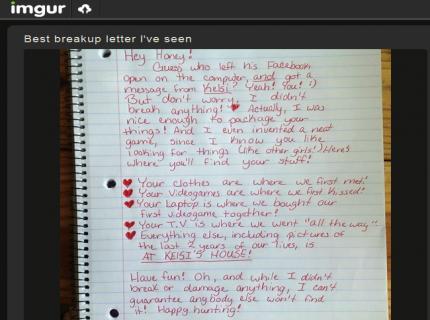 imgur
Best breakup letter I've seen
Hey Honey!
Guess who left his Facebook
open on the computer, and got a
message from Keisi? Yeah! You! :)
But don't worry, I didn't
break anything! Actually, I was
nice enough to package your
things! And I even invented a neat
game, since I know you like
looking for things (like other girls!) Here's
where you'll find your stuff!
Your clothes are where we first met!
Your Videogames are where we first kissed!
Your Laptop is where we bought our
first videogame together!
Your T.V is where we went "all the way"
Everything else, including pictures of
the last 2 years of our lives, is
AT KEISI'S HOUSE!
Have fun! Oh, and while I didn't
break or damage anything, I can't
guarantee anybody else won't find
it! Happy hunting!